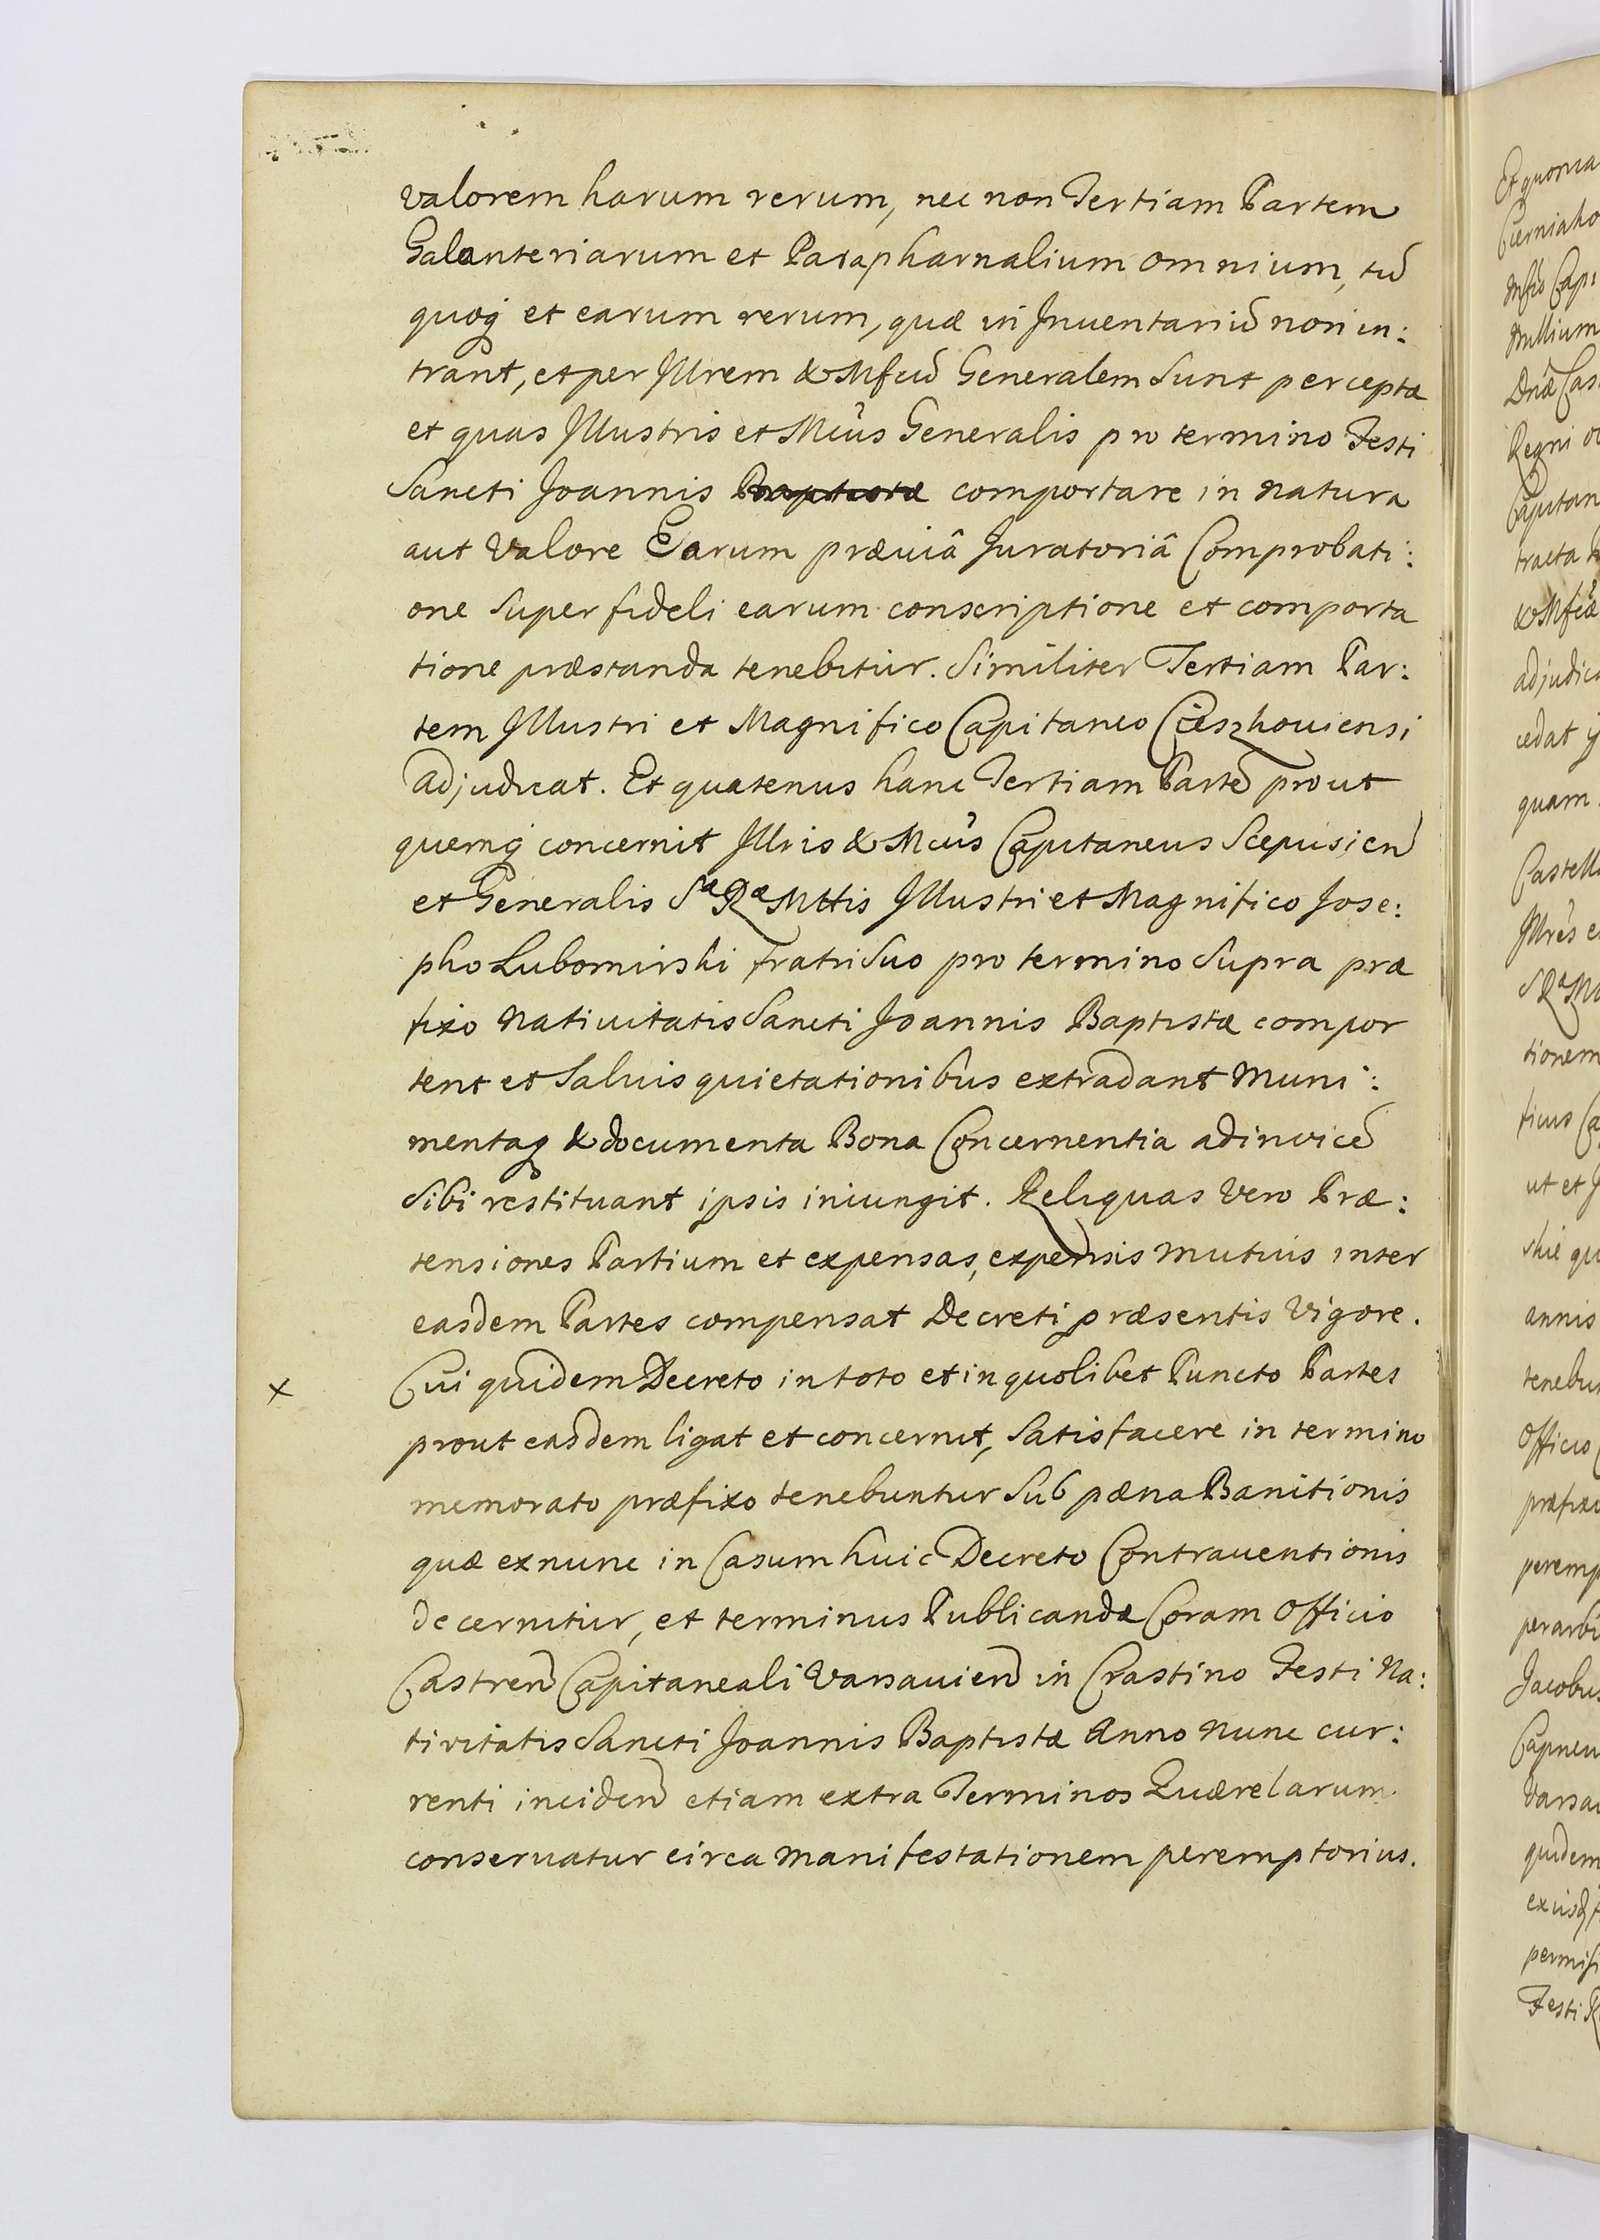 valorem harum rerum, nec non Tertiam Partem
Galanteriarum et Parapharnalium omnium, tū
quoq; et earum rerum, quæ in Inuentariū non in:
trant, et per Illrem & Mfcū Generalem sunt perceptæ
et quas Illustris et Mcūs Generalis pro termino Festi
Sancti Joannis Baptistæ comportare in natura
aut valore Earum præuiâ Juratoriâ Comprobati:
one super fideli earum conscriptione et comporta
tione præstanda tenebitur. Similiter Tertiam Par:
tem Illustri et Magnifico Capitaneo Cieszkouiensi
adjudicat. Et quatenus hanc Tertiam Partē prout
quemq; concernit Illris & Mcūs Capitaneus Scepusien̄
et Generalis Sæ Ræ Mttis Illustri et Magnifico Jose:
pho Lubomirski fratri Suo pro termino supra præ
fixo Nativitatis Sancti Joannis Baptistæ compor
tent et Saluis quietationibus extradant Muni:
mentaq; & documenta Bona Concernentia adinvicē
sibi restituant ipsis iniungit. Reliquas vero Præ:
tensiones Partium et expensas, expensis mutuis inter
easdem Partes compensat Decreti præsentis vigore.
x Cui quidem Decreto in toto et in quolibet Puncto Partes
prout easdem ligat et concernit, satisfacere in termino
memorato præfixo tenebuntur sub pæna Banitionis
quæ exnunc in Casum huic Decreto Contrauentionis
decernitur, et terminus Publicandæ Coram Officio
Castren̄ Capitaneali Varsauien̄ in Crastino Festi Na:
tivitatis Sancti Joannis Baptistæ Anno nunc cur:
renti inciden̄ etiam extra Terminos Quærelarum
conseruatur circa manifestationem peremptorius.